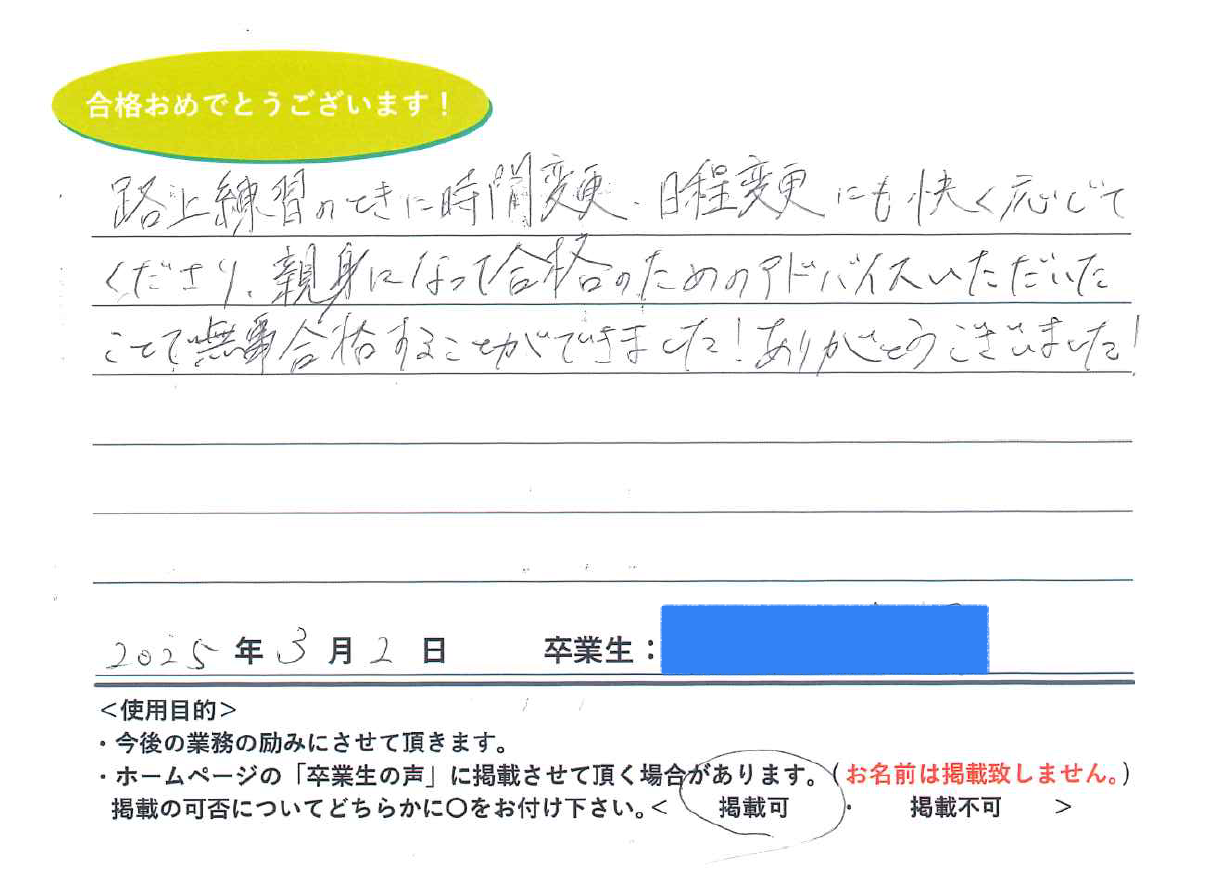 合格おめでとうございます！
路上練習のときに時間変更、日程変更にも快く応じて
くださり、親身になって合格のためのアドバイスいただいた
ことで無事合格することができました！ありがとうございました！
2025年3月2日 卒業生：
＜使用目的＞
・今後の業務の励みにさせて頂きます。
・ホームページの「卒業生の声」に掲載させて頂く場合があります。（お名前は掲載致しません。）
掲載の可否についてどちらかに〇をお付け下さい。＜ 掲載可 ・ 掲載不可 ＞